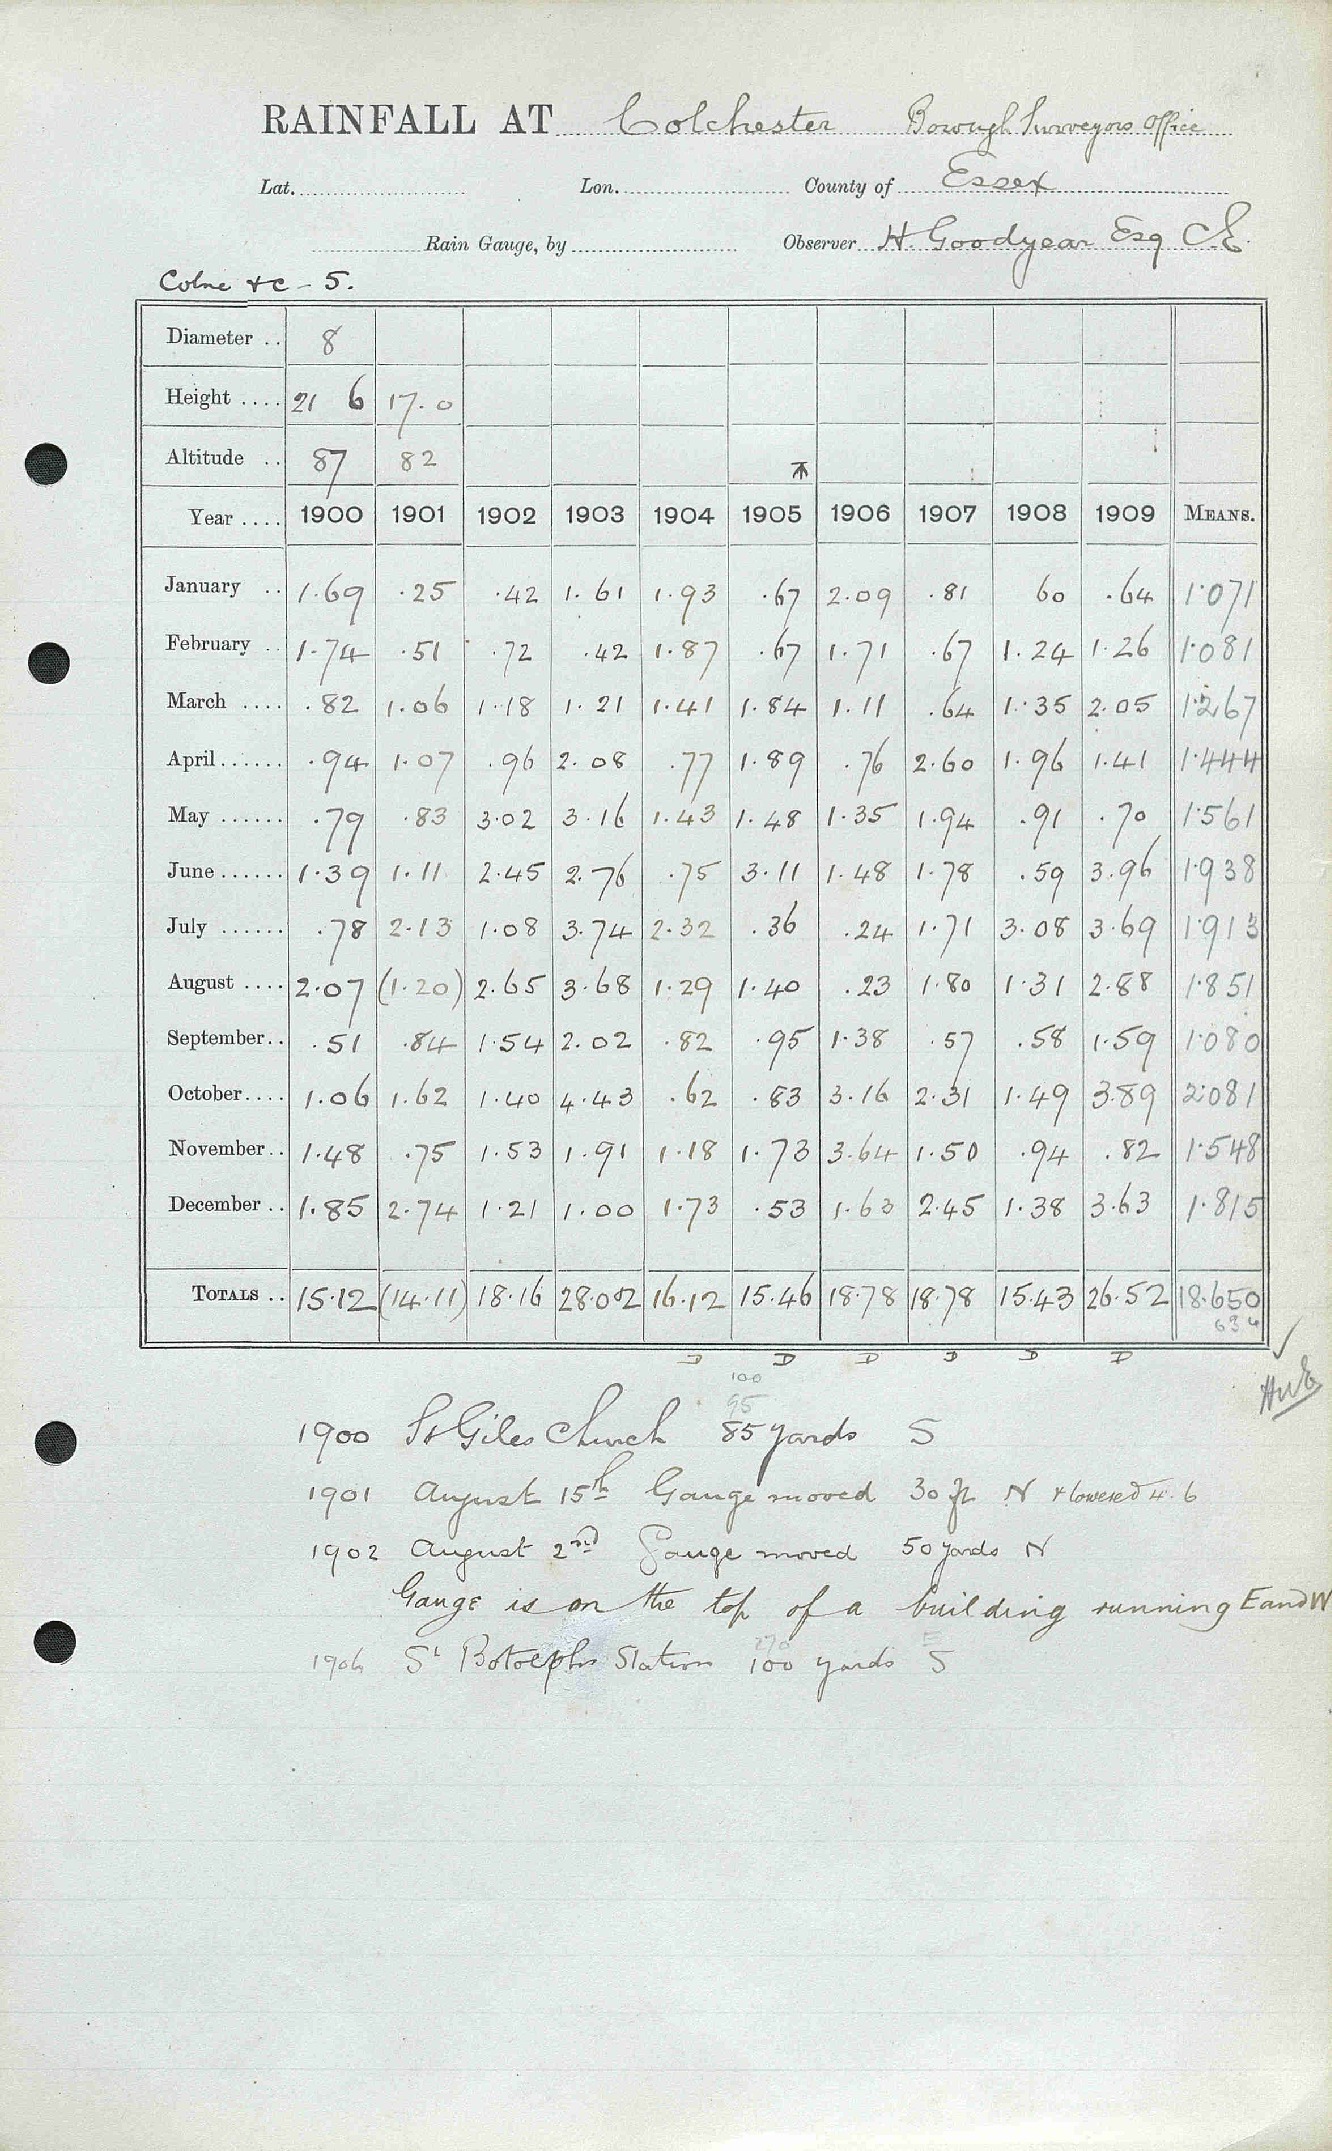 RAINFALL AT Colchester Borough Surveyors office
Lat. Lon. County of Essex
Rain Gauge, by Observer H. Goodyear Esq C.E.
Colne &c - 5.
Diameter .. 8
Height .... 21 6 17.0
Altitude .. 87 82
Year .... 1900 1901 1902 1903 1904 1905 1906 1907 1908 1909 MEANS.
January .. 1.69 .25 .42 1.61 1.93 .67 2.09 .81 60 .64 1.071
February .. 1.74 .51 .72 .42 1.87 .67 1.71 .67 1.24 1.26 1.081
March .... .82 1.06 1.18 1.21 1.41 1.84 1.11 .64 1.35 2.05 1.267
April ...... .94 1.07 .96 2.08 .77 1.89 .76 2.60 1.96 1.41 1.444
May ...... .79 .83 3.02 3.16 1.43 1.48 1.35 1.94 .91 .70 1.561
June ...... 1.39 1.11 2.45 2.76 .75 3.11 1.48 1.78 .59 3.96 1.938
July ...... .78 2.13 1.08 3.74 2.32 .36 .24 1.71 3.08 3.69 1.913
August .... 2.07 (1.20) 2.65 3.68 1.29 1.40 .23 1.80 1.31 2.88 1.851
September .. .51 .84 1.54 2.02 .82 .95 1.38 .57 .58 1.59 1.080
October .... 1.06 1.62 1.40 4.43 .62 .83 3.16 2.31 1.49 3.89 2.081
November .. 1.48 .75 1.53 1.91 1.18 1.73 3.64 1.50 .94 .82 1.548
December .. 1.85 2.74 1.21 1.00 1.73 .53 1.63 2.45 1.38 3.63 1.815
TOTALS .. 15.12 (14.11) 18.16 28.02 16.12 15.46 18.78 18.78 15.43 26.52 18.650
D D D D D D
100
95
1900 St Giles Church 85 yards S
1901 August 15th Gauge moved 30 ft N & lowered 4.6
1902 August 2nd Gauge moved 50 yards N
Gauge is on the top of a building running E and W
270 E
1906 St Botolphs Station 100 yards S